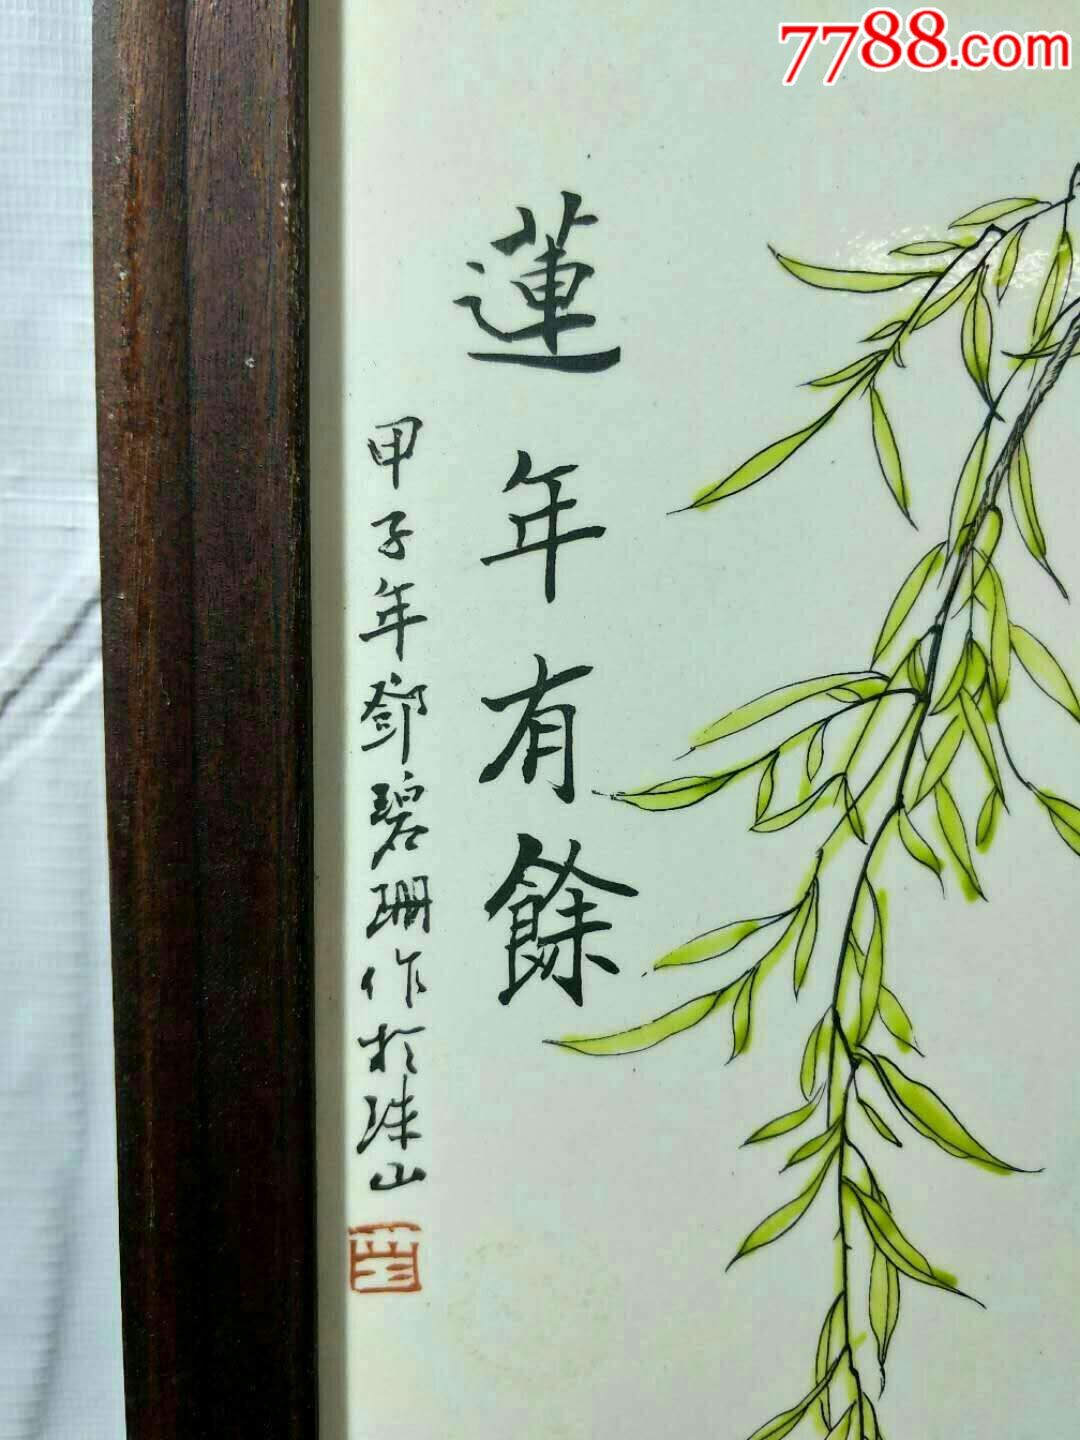 7788.com
蓮年有餘
甲子年鄧碧珊作於珠山